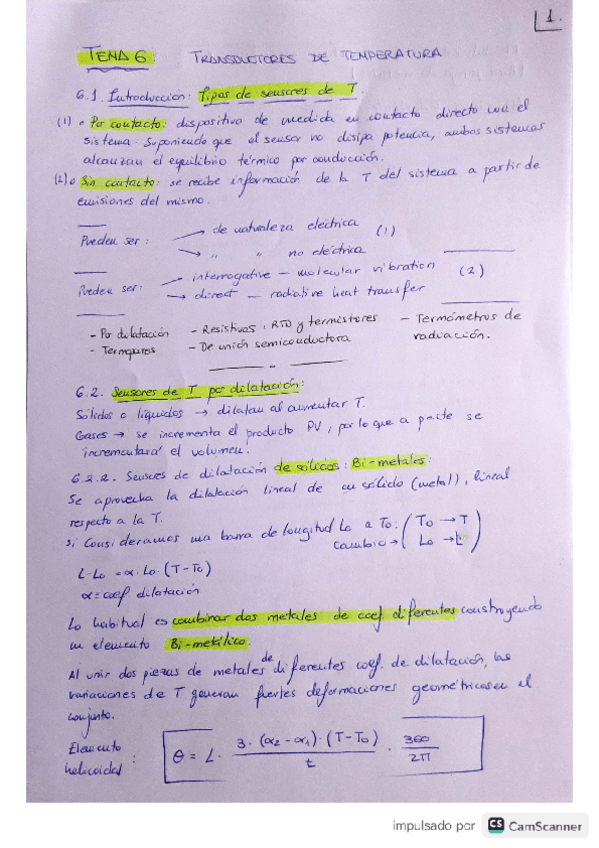 1.
TEMA 6: TRANSDUCTORES DE TEMPERATURA
6.1. Introducción: Tipos de sensores de T.
(1) • Por contacto: dispositivo de medida en contacto directo con el
sistema. Suponiendo que el sensor no disipa potencia, ambos sistemas
alcanzan el equilibrio térmico por conducción.
(2) • Sin contacto: se recibe información de la T del sistema a partir de
emisiones del mismo.
Pueden ser: → de naturaleza eléctrica (1)
→ " " no eléctrica
Pueden ser: → interrogative – molecular vibration (2)
→ direct – radiative heat transfer
- Por dilatación - Resistivos: RTD y termistores - Termómetros de
- Termopares - De unión semiconductora radiación.
6.2. Sensores de T por dilatación:
Sólidos o líquidos → dilatan al aumentar T.
Gases → se incrementa el producto PV, por lo que a P cte se
incrementará el volumen.
6.2.2. Sensores de dilatación de sólidos: Bi-metales:
Se aprovecha la dilatación lineal de un sólido (metal), lineal
respecto a la T.
Si consideramos una barra de longitud Lo a To: (To → T
cambio → Lo → L)
L-Lo = α·Lo·(T-To)
α = coef dilatación
Lo habitual es combinar dos metales de coef. diferentes construyendo
un elemento Bi-metálico.
Al unir dos piezas de metales de diferentes coef. de dilatación, las
variaciones de T generan fuertes deformaciones geométricas en el
conjunto.
Elemento helicoidal: θ = L · 3·(α2-α1)·(T-To) / t · 360 / 2π
impulsado por CS CamScanner